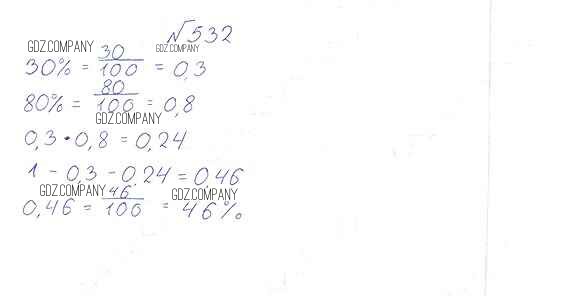 №532
GDZ.COMPANY
GDZ.COMPANY
30% = 30/100 = 0,3
80% = 80/100 = 0,8
GDZ.COMPANY
0,3 • 0,8 = 0,24
1 - 0,3 - 0,24 = 0,46
GDZ.COMPANY
GDZ.COMPANY
0,46 = 46/100 = 46%